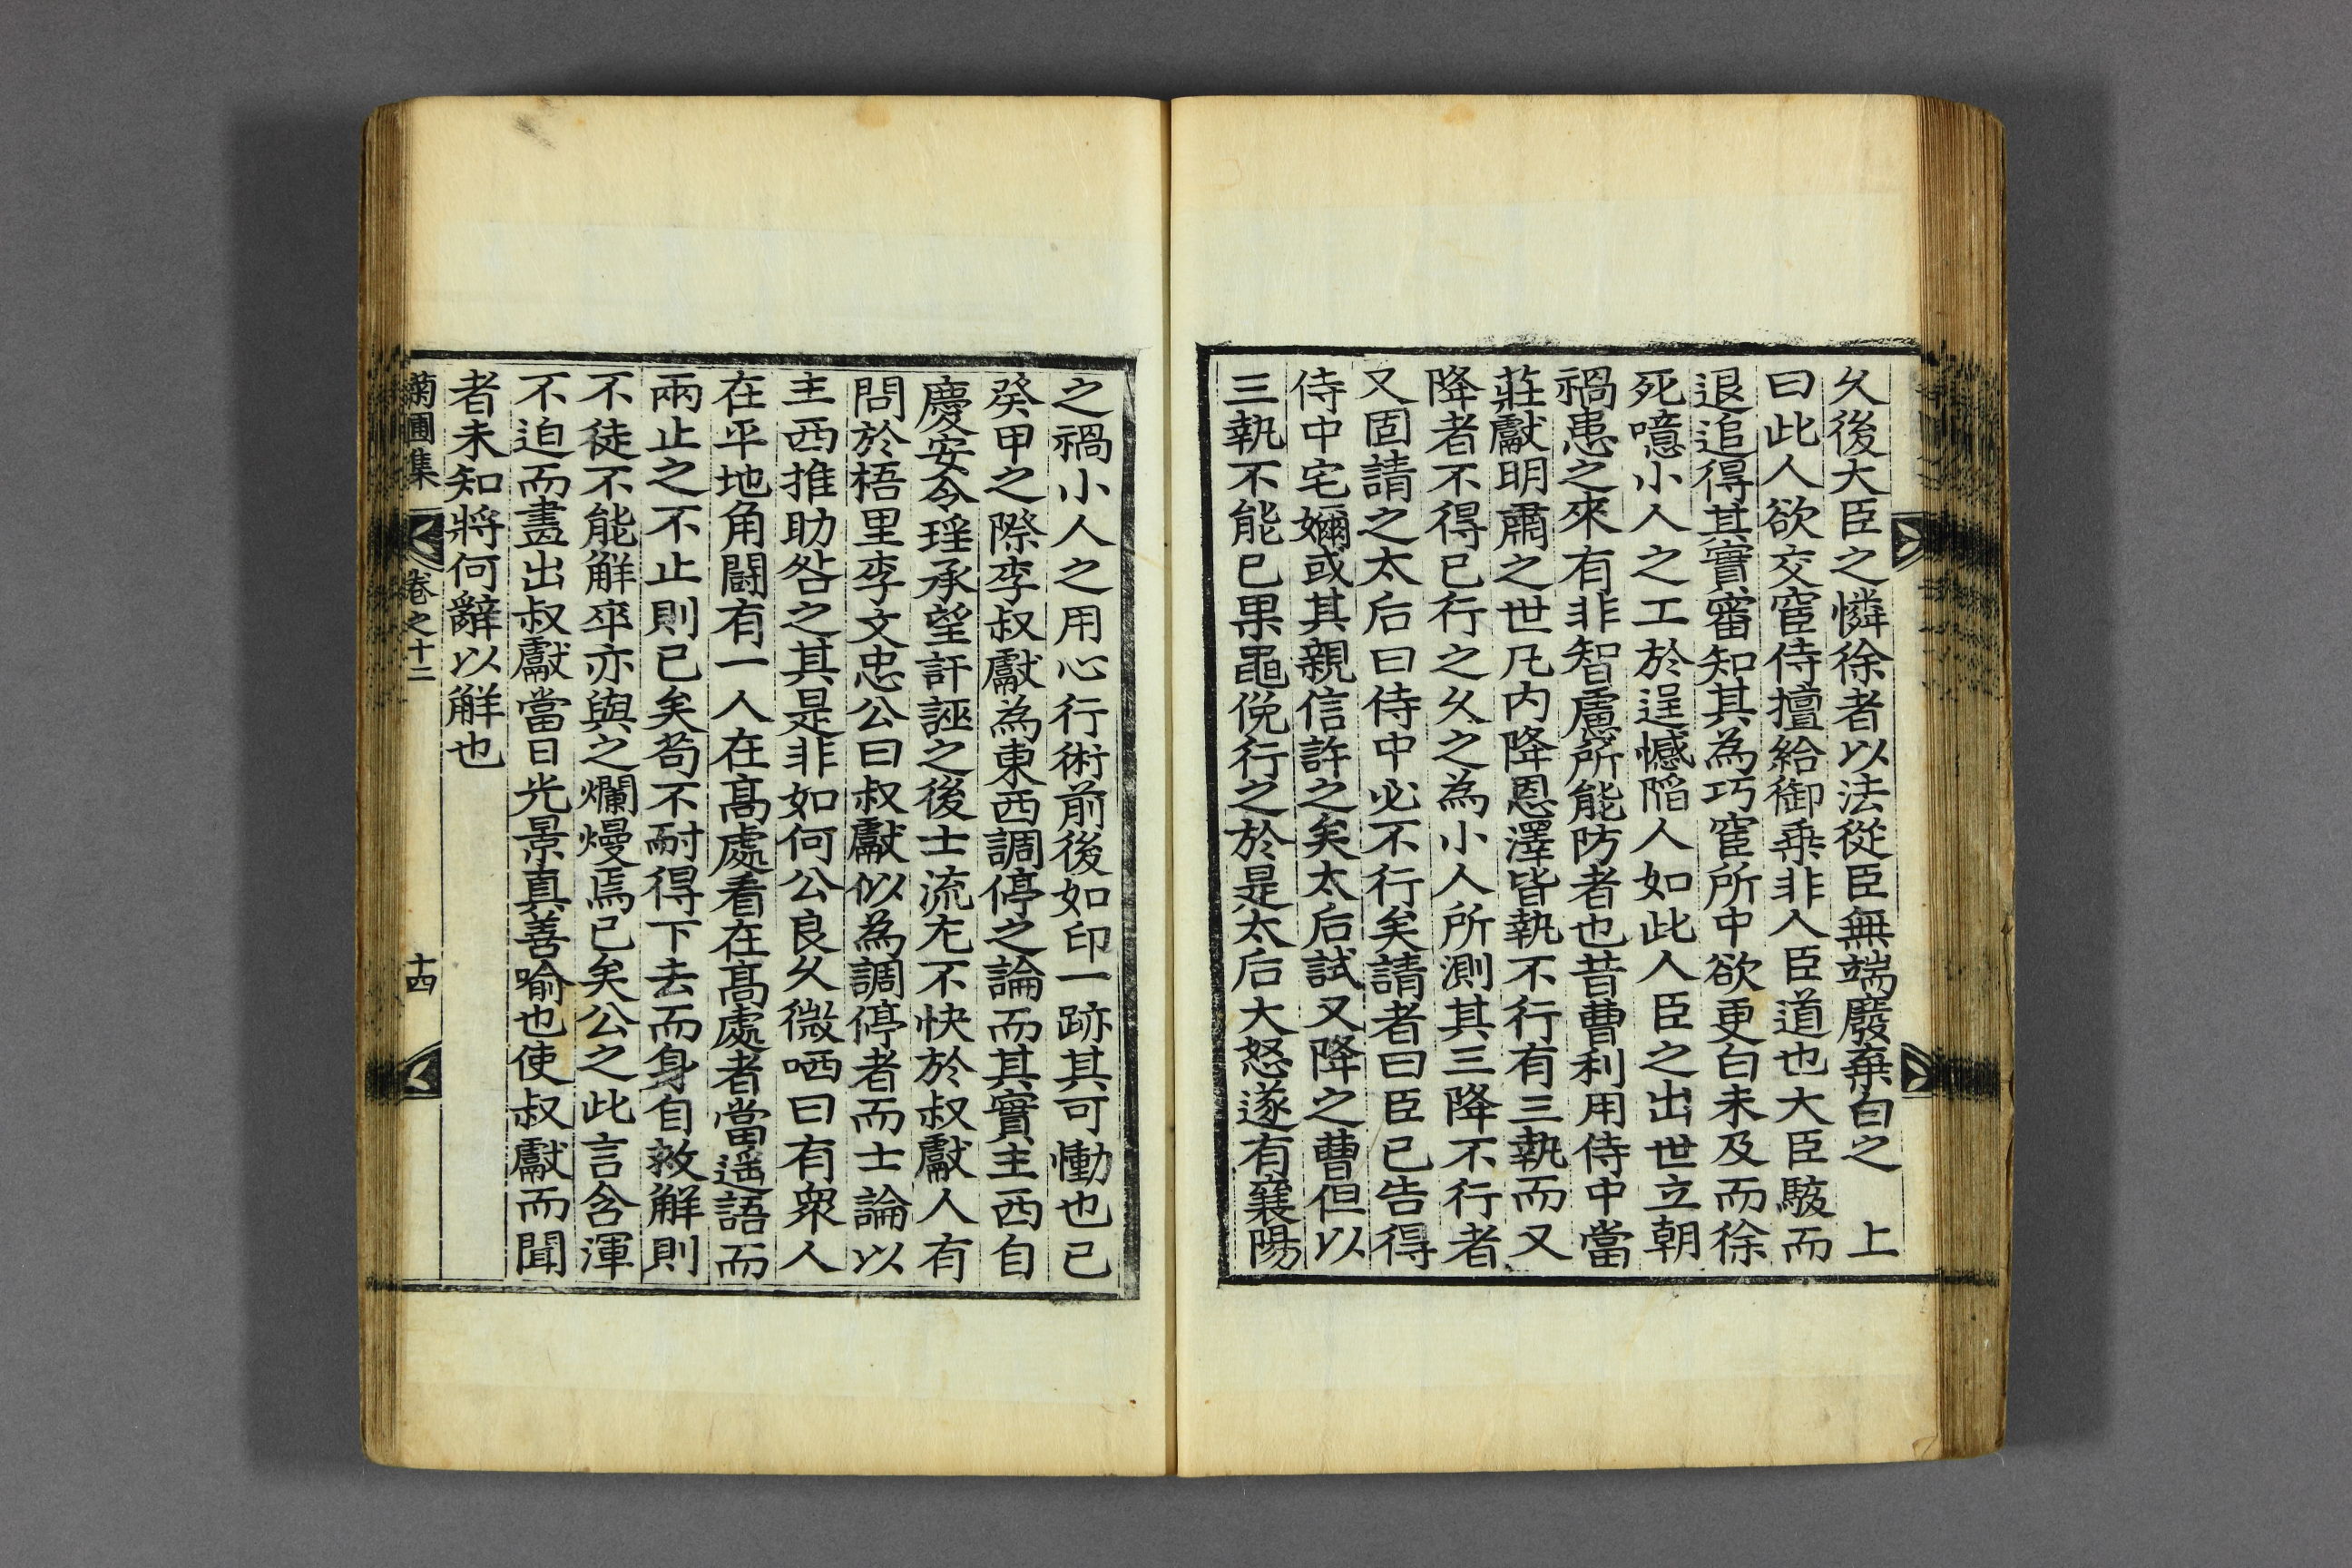 久後大臣之憐徐者以法從臣無端廢棄白之 上
曰此人欲交宦侍擅給御乘非人臣道也大臣駭而
退追得其實審知其為巧宦所中欲更白未及而徐
死噫小人之工於逞憾陷人如此人臣之出世立朝
禍患之來有非智慮所能防者也昔曹利用侍中當
莊獻明肅之世凡內降恩澤皆執不行有三執而又
降者不得已行之久之為小人所測其三降不行者
又固請之太后曰侍中必不行矣請者曰臣已告得
侍中宅嬭或其親信許之矣太后試又降之曹但以
三執不能已果黽俛行之於是太后大怒遂有襄陽
之禍小人之用心行術前後如印一跡其可慟也已
癸甲之際李叔獻為東西調停之論而其實主西自
慶安令瑤承望訐誣之後士流尤不快於叔獻人有
問於梧里李文忠公曰叔獻似為調停者而士論以
主西推助咎之其是非如何公良久微哂曰有衆人
在平地角鬪有一人在高處看在高處者當遥語而
兩止之不止則已矣苟不耐得下去而身自救解則
不徒不能解卒亦與之爛熳焉已矣公之此言含渾
不迫而盡出叔獻當日光景真善喻也使叔獻而聞
者未知將何辭以解也
菊圃集 卷之十二 十四